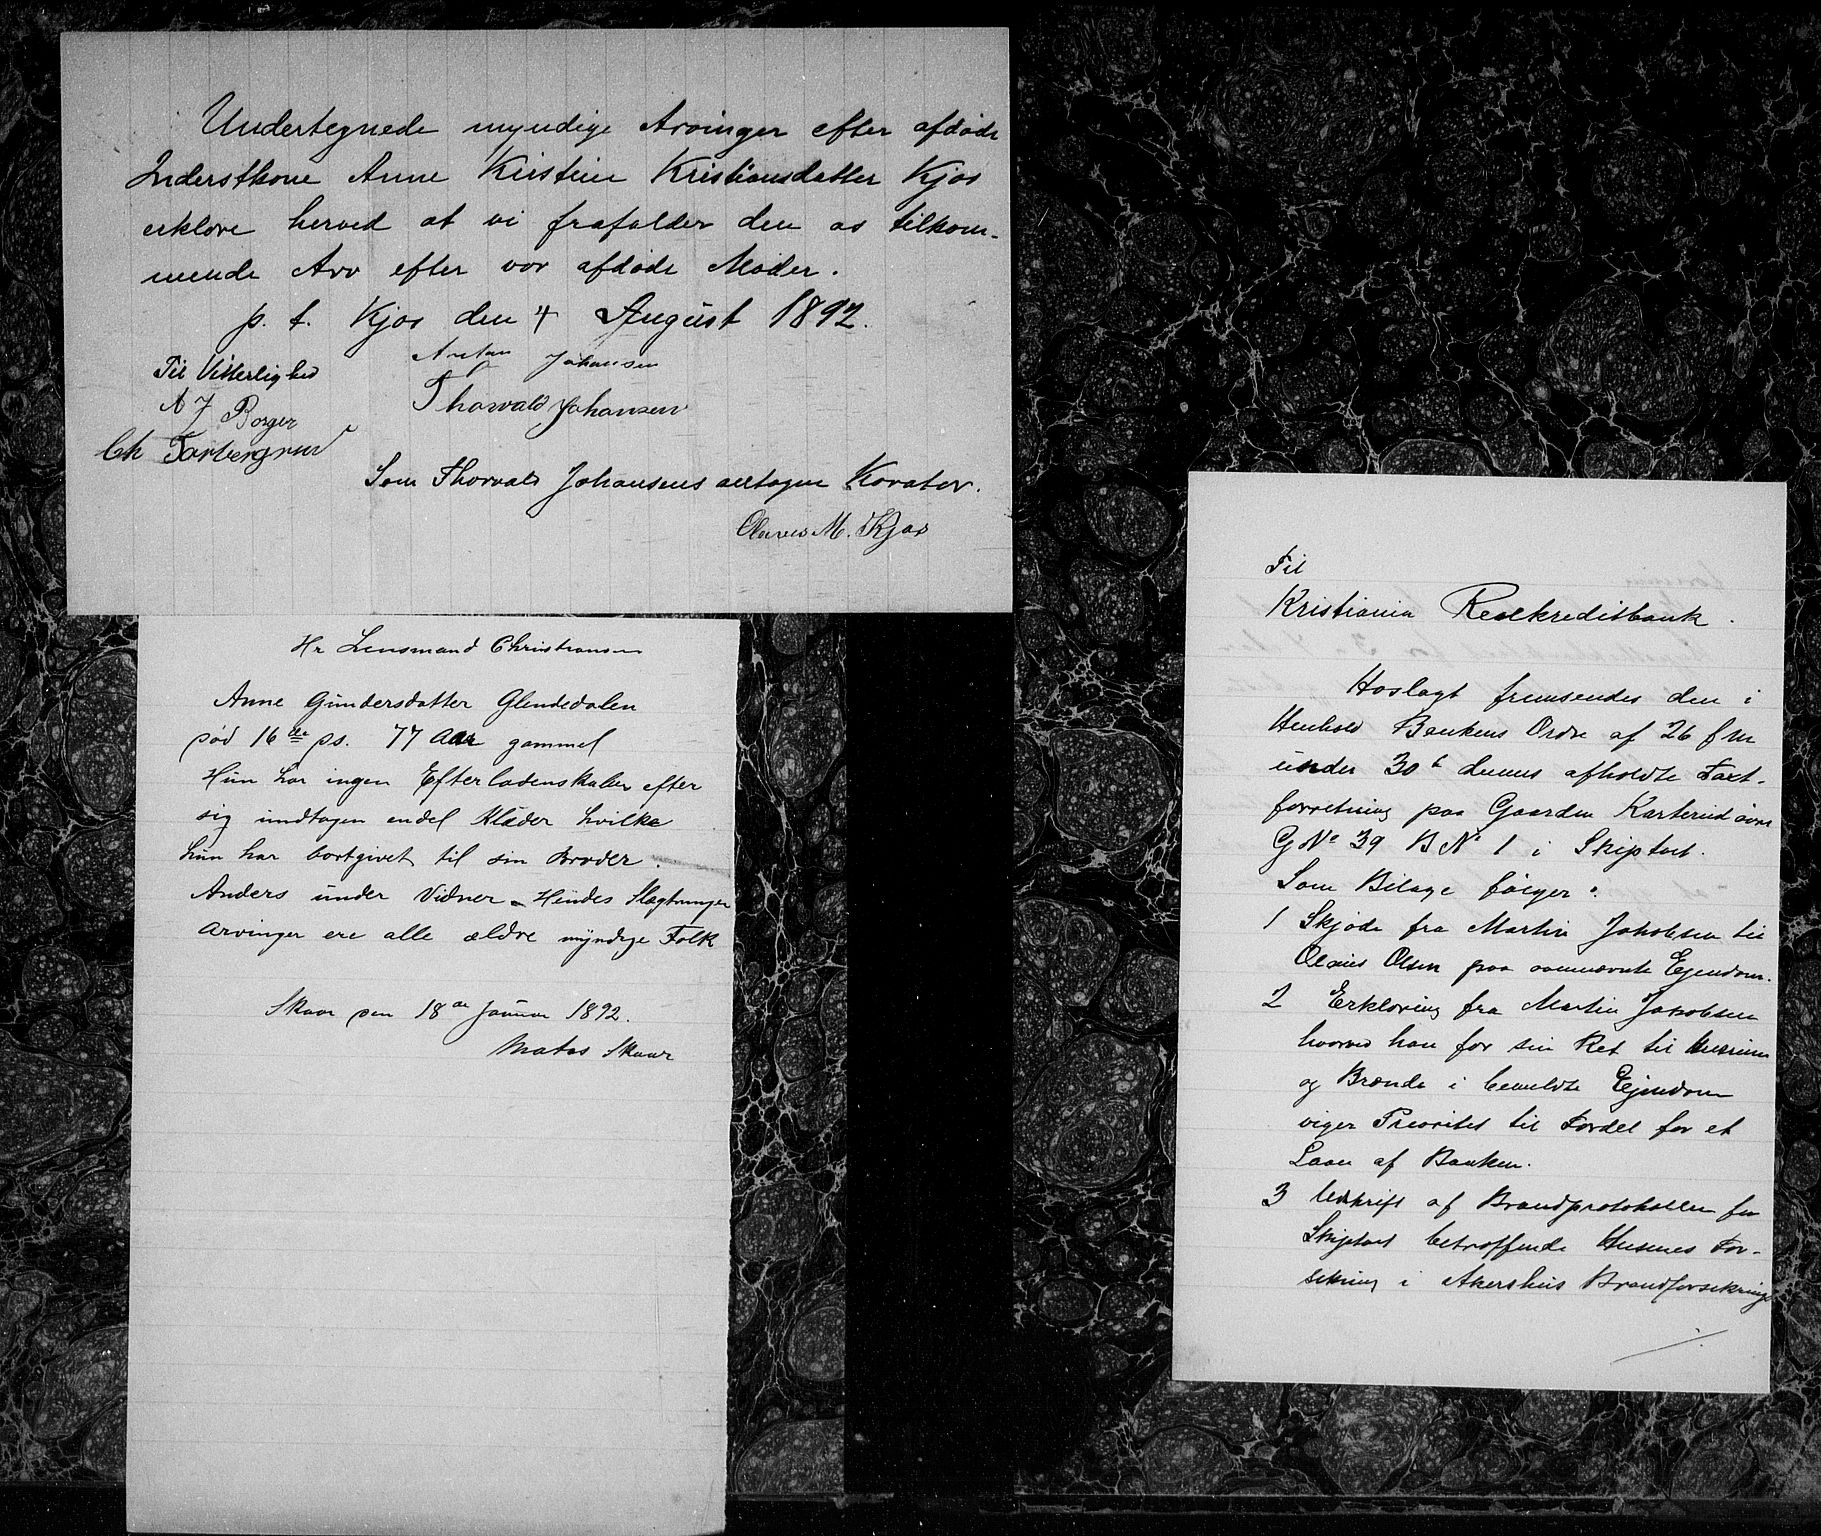 Undertegnede myndige Arvinger efter afdøde
Inderstkone Anne Kristine Kristiansdatter Kjos
erklære herved at vi frafalder den os tilkom-
mende Arv efter vor afdøde Moder.
p. t. Kjos den 4 August 1892.
Til Vitterlighed
A J Borger
Ch Tarbergrud
Anton Johansen
Thorvald Johansen
Som Thorvald Johansens antagne Kurator.
Olaves M. Kjos
Hr Lensmand Christiansen
Anne Gundersdatter Glendedalen
død 16de ds. 77 Aar gammel
Hun har ingen Efterladenskaber efter
sig undtagen endel Klæder hvilke
hun har bortgivet til sin Broder
Anders under Vidner. Hendes Slægtninger
Arvinger ere alle ældre myndige Folk
Skaar den 18de Januar 1892.
Skaar
Til
Kristiania Realkreditbank.
Hoslagt fremsendes den i
Henhold Bankens Ordre af 26 f M
under 30te dennes afholdte Taxt-
forretning paa Gaarden Karterud øvre
G No 39 B No 1 i Skiptvet.
Som Bilage følger:
1 Skjøde fra Martin Jakobsen til
Olaus Olsen paa ovennævnte Ejendom.
2 Erklæring fra Martin Jakobsen
hvorved han for sin Ret til Husrum
og Brænde i bemeldte Ejendom
viger Prioritet til Fordel for et
Laan af Banken.
3 Udskrift af Brandprotokollen for
Skiptvet betræffende Husenes For-
sikring i Akershus Brandforsikrings